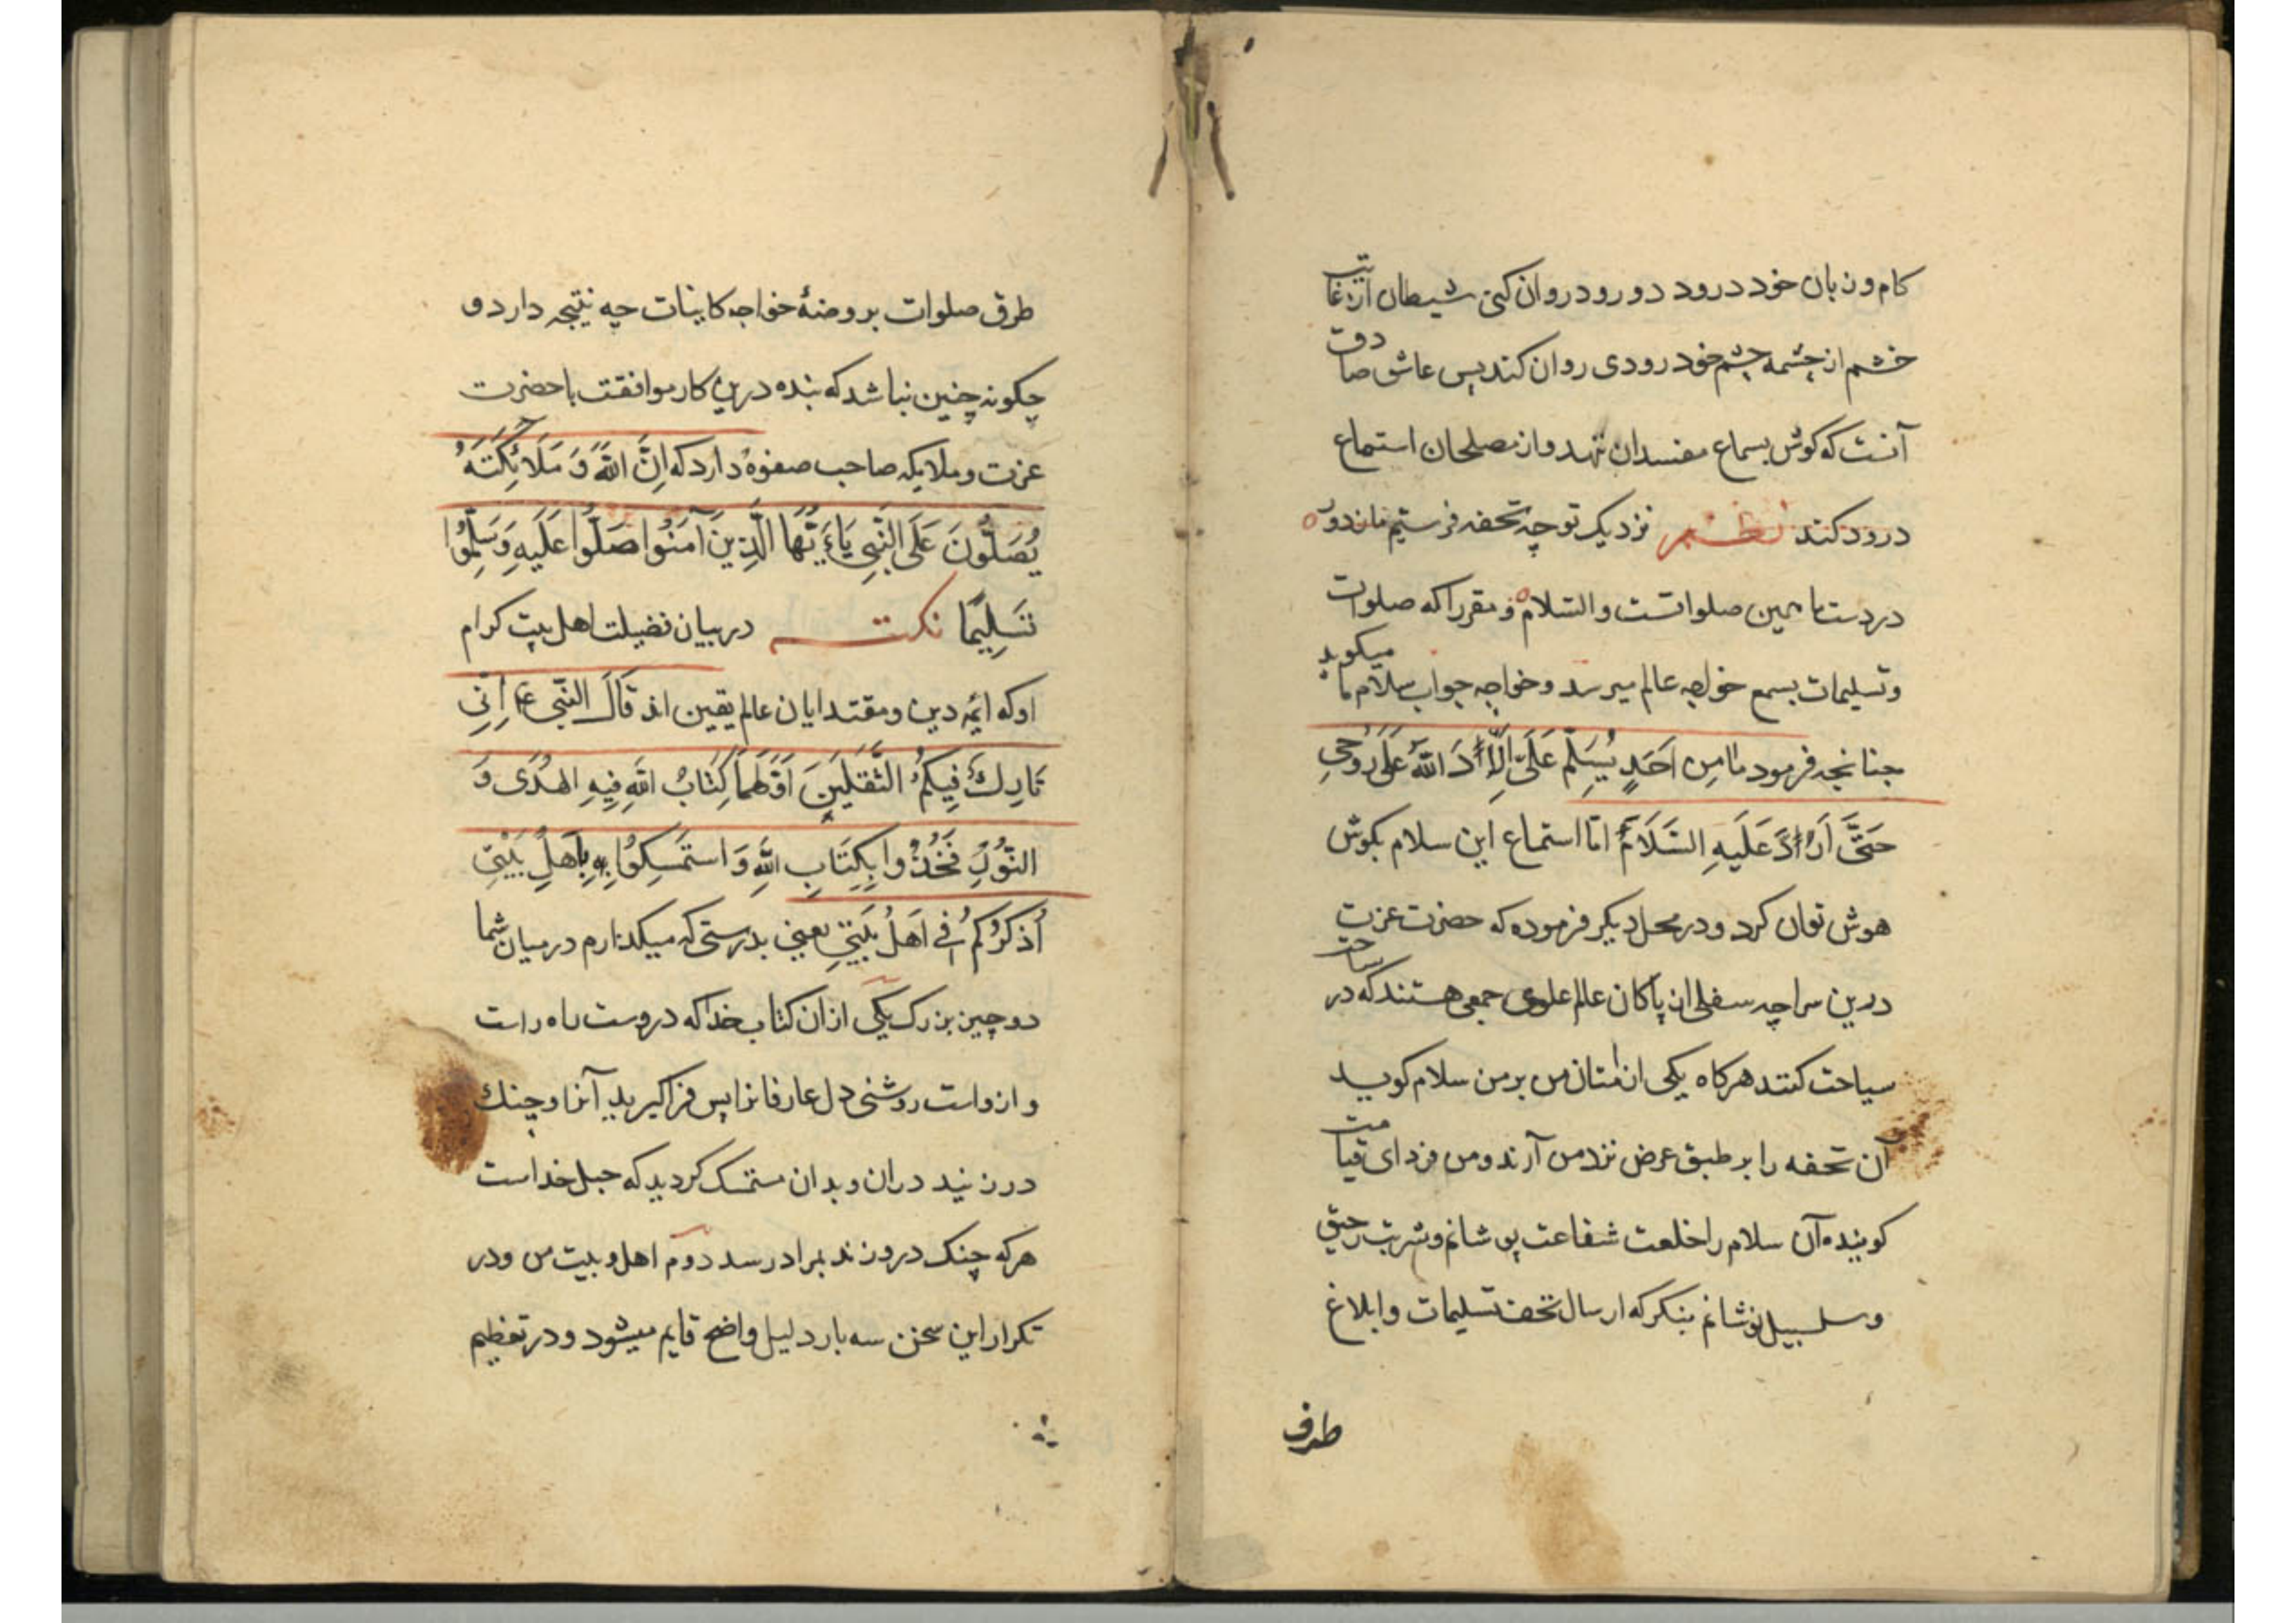 کام و زبان خود درود دو رود روان کنی شیطان از غایت
خشم از چشمه چشم خود رودی روان کند پس عاشق صادق
آنست که کوش بسماع مفسدان ننهد و از مصلحان استماع
درود کند نظم نزدیک تو چه تحفه فرستیم ما ز دور
در دست ما همین صلواتست و السلام و مقررا که صلوات
و تسلیمات بسمع خواجه عالم میرسد و خواجه جواب سلام ما میکوید
جنانجه فرمود مَا مِن اَحَدٍ یُسَلِّم عَلَیَّ اِلَّا رَدَّ اللهُ عَلَیَّ رُوحِی
حَتَّی اَرُدَّ عَلَیهِ السَّلَامُ امّا استماع این سلام بکوش
هوش توان کرد و در محل دیکر فرموده که حضرت عزت
درین سراچه سفلی از پاکان عالم علوی جمعی هستند که در ساحت
سیاحت کنند هرکاه یکی از امتان من بر من سلام کوید
آن تحفه را بر طبق عرض نزد من آرند و من فردای قیامت
کوینده آن سلام را خلعت شفاعت پوشانم و شربت رحیق
و سلسبیل نوشانم بنکر که ارسال تحف تسلیمات و ابلاغ
طرف
طرق صلوات بروضهٔ خواجه کاینات چه نتیجه دارد و
چکونه چنین نباشد که بنده درین کار موافقت با حضرت
عزت و ملایکه صاحب صفوة دارد که اِنَّ اللهَ وَ مَلَائِکَتَهُ
یُصَلُّونَ عَلَی النَّبِی یَاءَیُّهَا الَّذِینَ آمَنُوا صَلُّوا عَلَیهِ وَسَلِّمُوا
تَسلِیمًا نکته در بیان فضیلت اهل بیت کرام
او که ایمه دین و مقتدایان عالم یقین اند قَالَ النَّبِی عم اِنِّی
تَارِكٌ فِیکُمُ الثَّقَلَینِ اَوَّلُهُمَا کِتَابُ اللهِ فِیهِ الهُدَی وَ
النُّورُ فَخُذُوا بِکِتَابِ اللهِ وَ استَمسِکُوا بِهِ بِاَهلِ بَیتِی
اُذکِرُکُم فی اَهلِ بَیتِی یعنی بدرستی که میکذارم در میان شما
دو چیز بزرک یکی ازان کتاب خدا که دروست راه راست
و ازو است روشنی دل عارفانرا پس فرا کیرید آنرا و چنك
در زنید دران و بدان مستمسک کردید که حبل خداست
هرکه چنک درو زند بمراد رسد دوم اهل و بیت من و در
تکرار این سخن سه بار دلیل واضح قایم میشود و در تعظیم